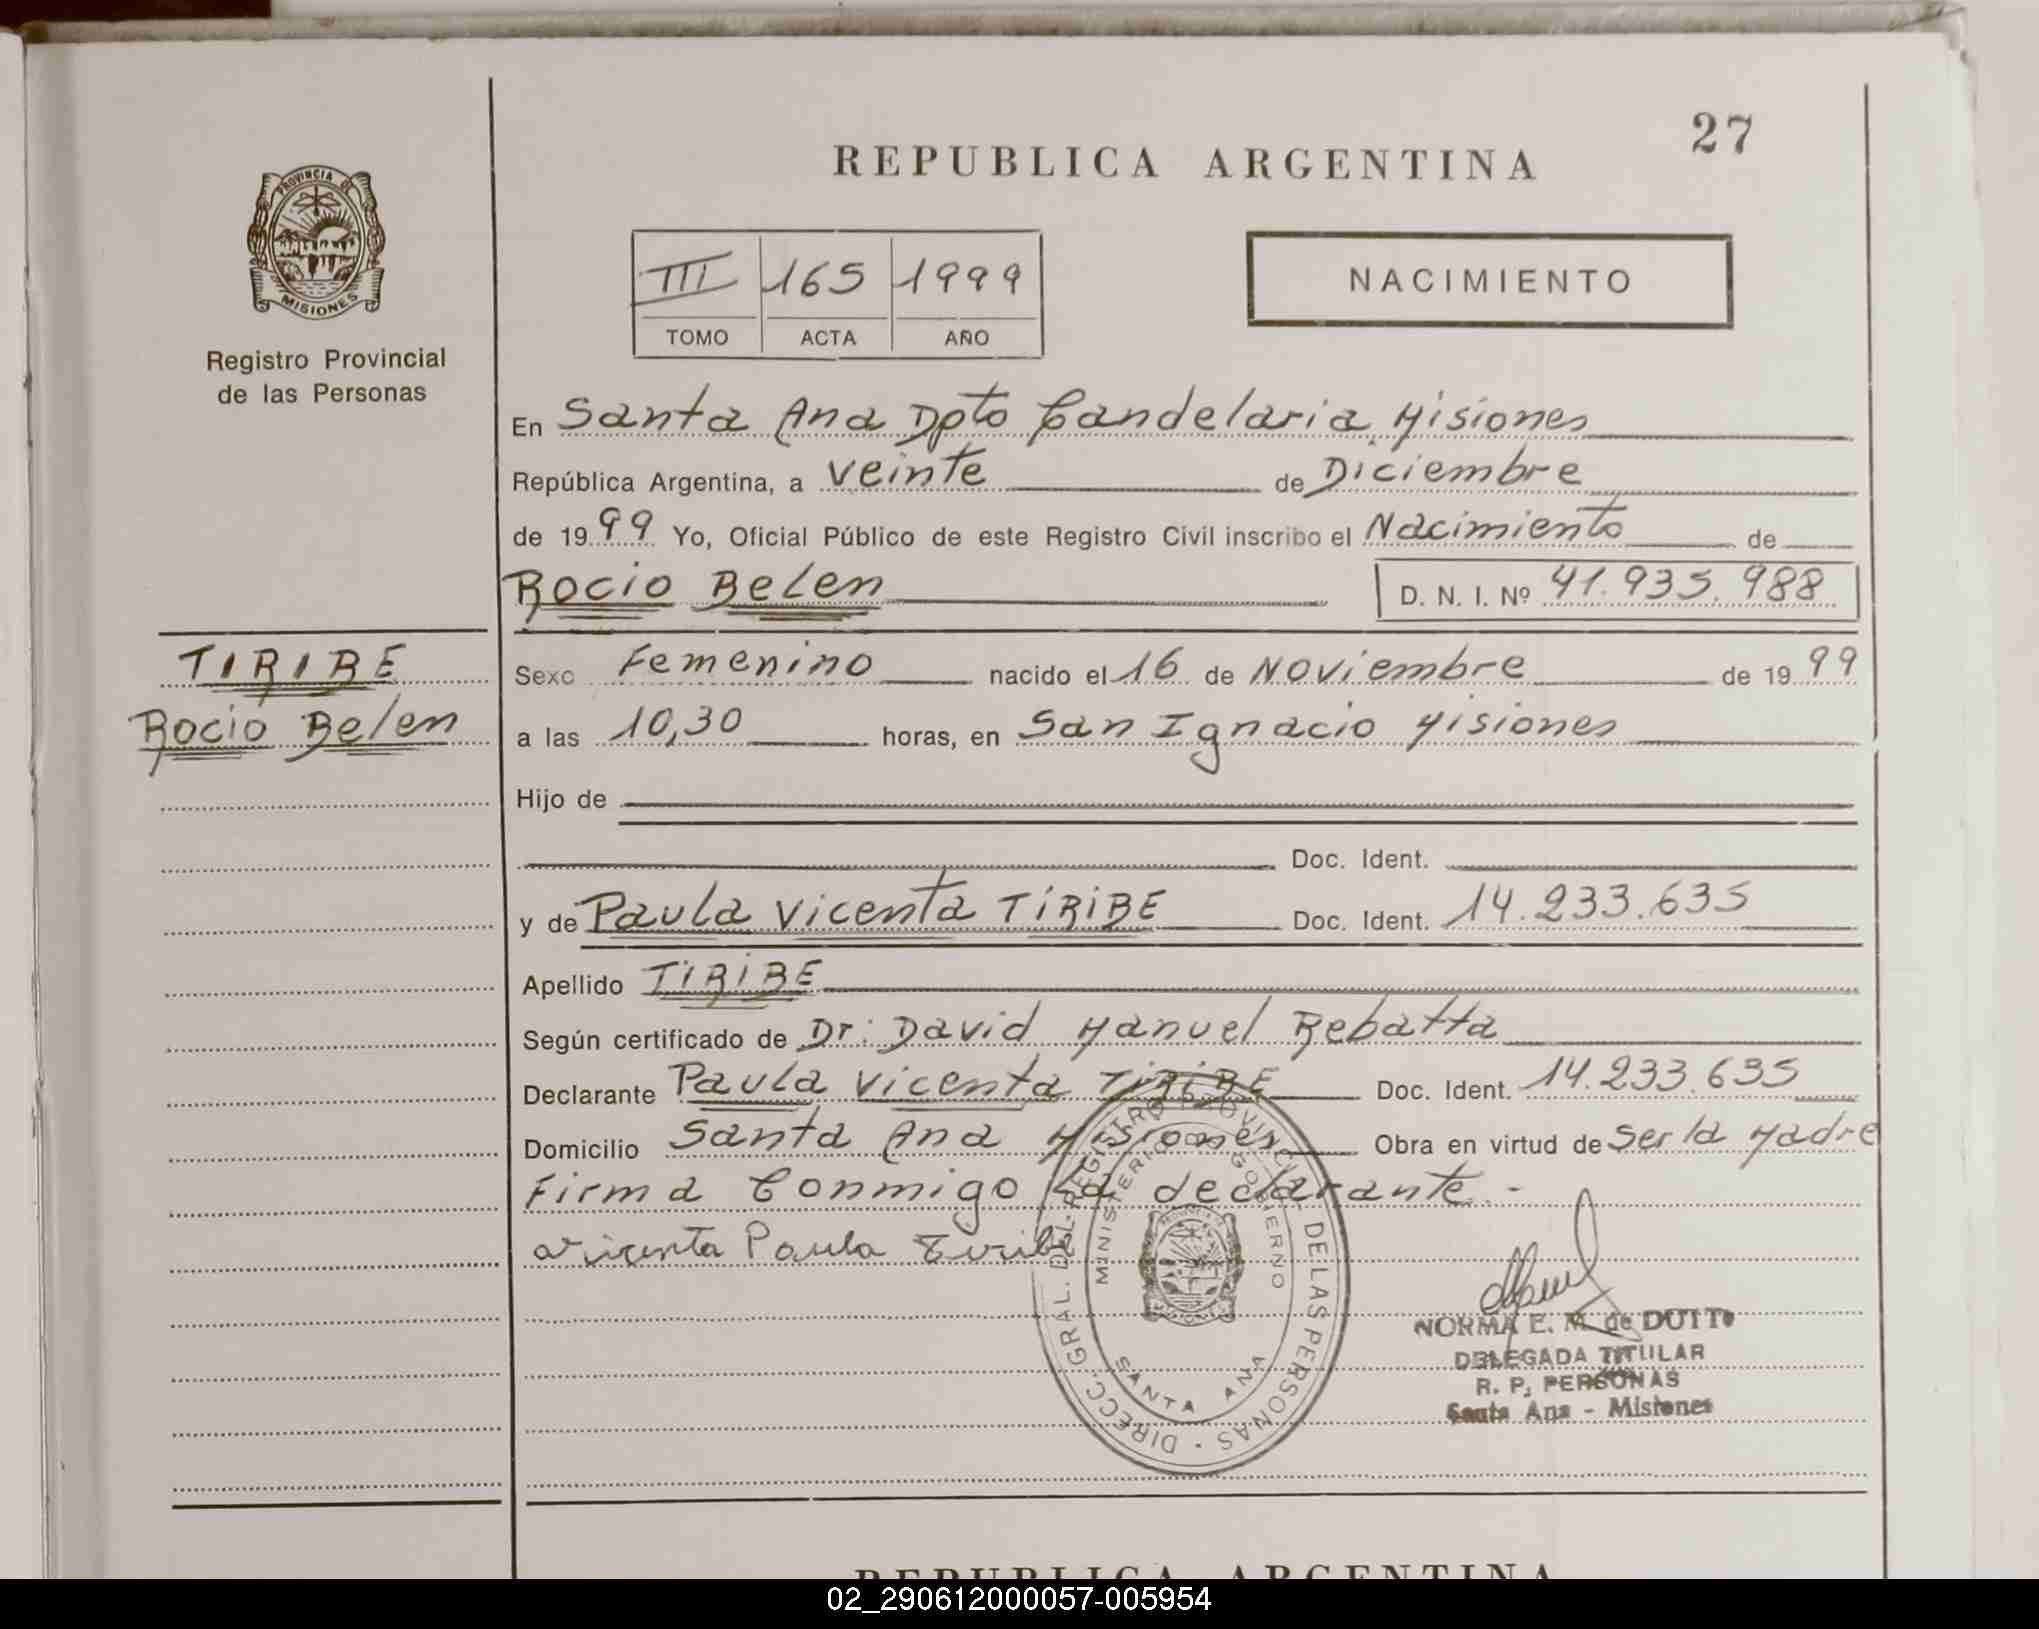 27
REPUBLICA ARGENTINA
PROVINCIA DE
MISIONES
Registro Provincial
de las Personas
III 165 1999
TOMO ACTA AÑO
NACIMIENTO
En Santa Ana Dpto Candelaria, Misiones
República Argentina, a Veinte de Diciembre
de 1999 Yo, Oficial Público de este Registro Civil inscribo el Nacimiento de
Rocio Belen D. N. I. Nº 41.935.988
TIRIBE
Rocio Belen
Sexo Femenino nacido el 16 de Noviembre de 1999
a las 10,30 horas, en San Ignacio Misiones
Hijo de
Doc. Ident.
y de Paula Vicenta TIRIBE Doc. Ident. 14.233.635
Apellido TIRIBE
Según certificado de Dr: David Manuel Rebatta
Declarante Paula Vicenta TIRIBE Doc. Ident. 14.233.635
Domicilio Santa Ana Misiones Obra en virtud de Ser la Madre
Firma Conmigo La declarante.-
Vicenta Paula Tiribe
DIRECC. GRAL. DEL REGISTRO PROVINCIAL DE LAS PERSONAS
MINISTERIO DE GOBIERNO
SANTA ANA
NORMA E. M. de DUTTO
DELEGADA TITULAR
R. P. PERSONAS
Santa Ana - Misiones
REPUBLICA ARGENTINA
02_290612000057-005954